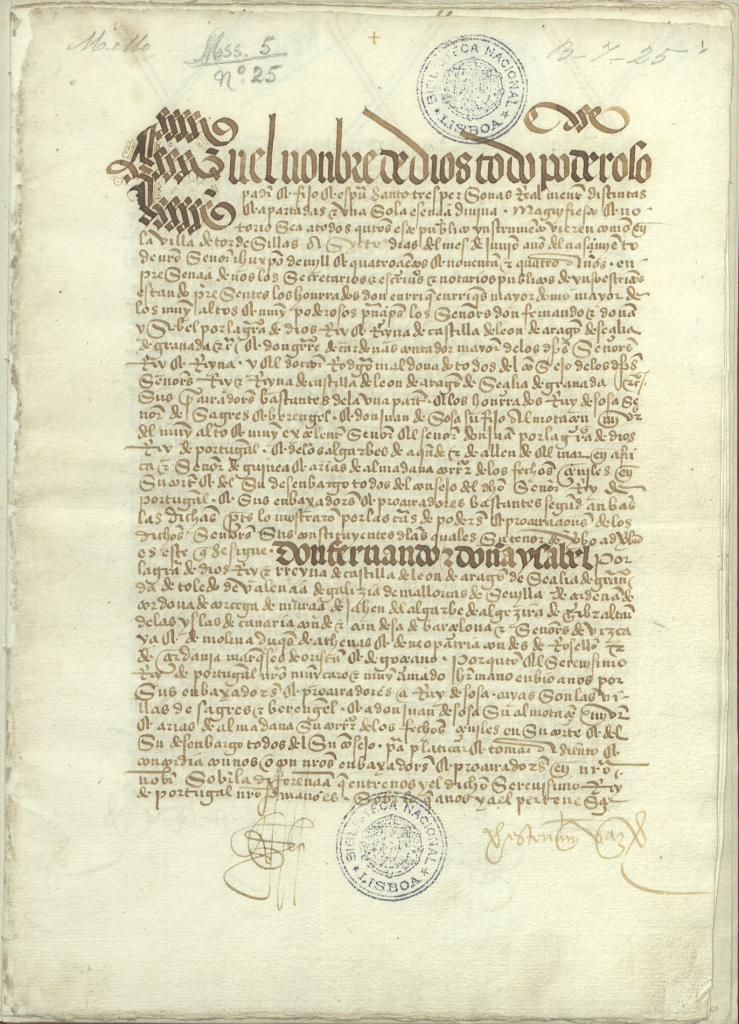 Mello
Mss. 5
Nº 25
B-7-25
BIBLIOTECA NACIONAL
LISBOA
En el nonbre de dios todo poderoso
padre & fijo & espu santo tres personas Realmente distintas
& apartadas & una sola esencia divina. Magnifiesto & no
torio sea a todos quantos este publico ynstrumento vieren como en
la villa de tordesillas A Syete dias del mes de junio año del nasçimiento
de nro Señor ihu xpo de mill & quatroçientos & noventa & quatro años. en
presençia de nos los Secretarios & escrivanos & notarios publicos de yuso escriptos
estando presentes los honrrados don enrriq enrriques mayordomo mayor de
los muy altos & muy poderosos prinçipes los Señores don fernando & doña
ysabel por la graçia de dios Rey & Reyna de castilla de leon de aragon de seçilia
de granada & don guterre de cardenas contador mayor de los dichos Señores
Rey & Reyna. y el doctor Rodrigo maldonado todos del consejo de los dichos
Señores Rey & Reyna de castilla de leon de aragon de Seçilia de granada
Sus procuradores bastantes de la una parte. & los honrrados Ruy de sosa Se
ñor de Sagres & berengel. & don juan de Sosa su fijo Almotaçen mayor
del muy alto & muy exçelente Señor El señor don juan por la graçia de dios
Rey de portugal. & de los algarbes de aquende & de allende el mar en afri
ca & Señor de guinea & arias de almadana corregidor de los fechos çeviles en
Su corte & del Su desenbargo todos del consejo del dicho Señor Rey de
portugal. & Sus enbaxadores & procuradores bastantes segund anbas
las dichas partes lo mostraron por las cartas de poderes & procuraçiones de los
dichos Señores Sus constituyentes de las quales Su tenor de verbo ad verbo
es este que se sigue. Don fernando & doña ysabel por
la graçia de dios Rey & Reyna de castilla de leon de aragon de Seçilia de grana
da de toledo de valençia de galizia de mallorcas de Sevilla de çerdeña de
cordova de corçega de murçia de jahen del algarbe de algezira de gibraltar
de las yslas de canaria conde & condesa de barçelona & Señores de vizca
ya & de molina duques de athenas & de neopatria condes de Rosellon
& de çerdania marqueses de oristan & de goçiano. Por quanto el Serenisimo
Rey de portugal nro muy caro & muy amado hermano enbio a nos por
Sus enbaxadores & procuradores a Ruy de sosa cuyas son las vi
llas de sagres & berengel. & a don juan de sosa Su almotaçen mayor
& arias de almadana Su corregidor de los fechos çeviles en Su corte & del
Su desenbargo todos del Su consejo. para platicar & tomar asiento &
concordia con nos o con nros enbaxadores & procuradores en nro
nonbre Sobre la diferençia que entre nos y el dicho Serenisimo Rey
de portugal nro hermano es. Sobre lo que a nos y a el perteneçe
BIBLIOTECA NACIONAL
LISBOA